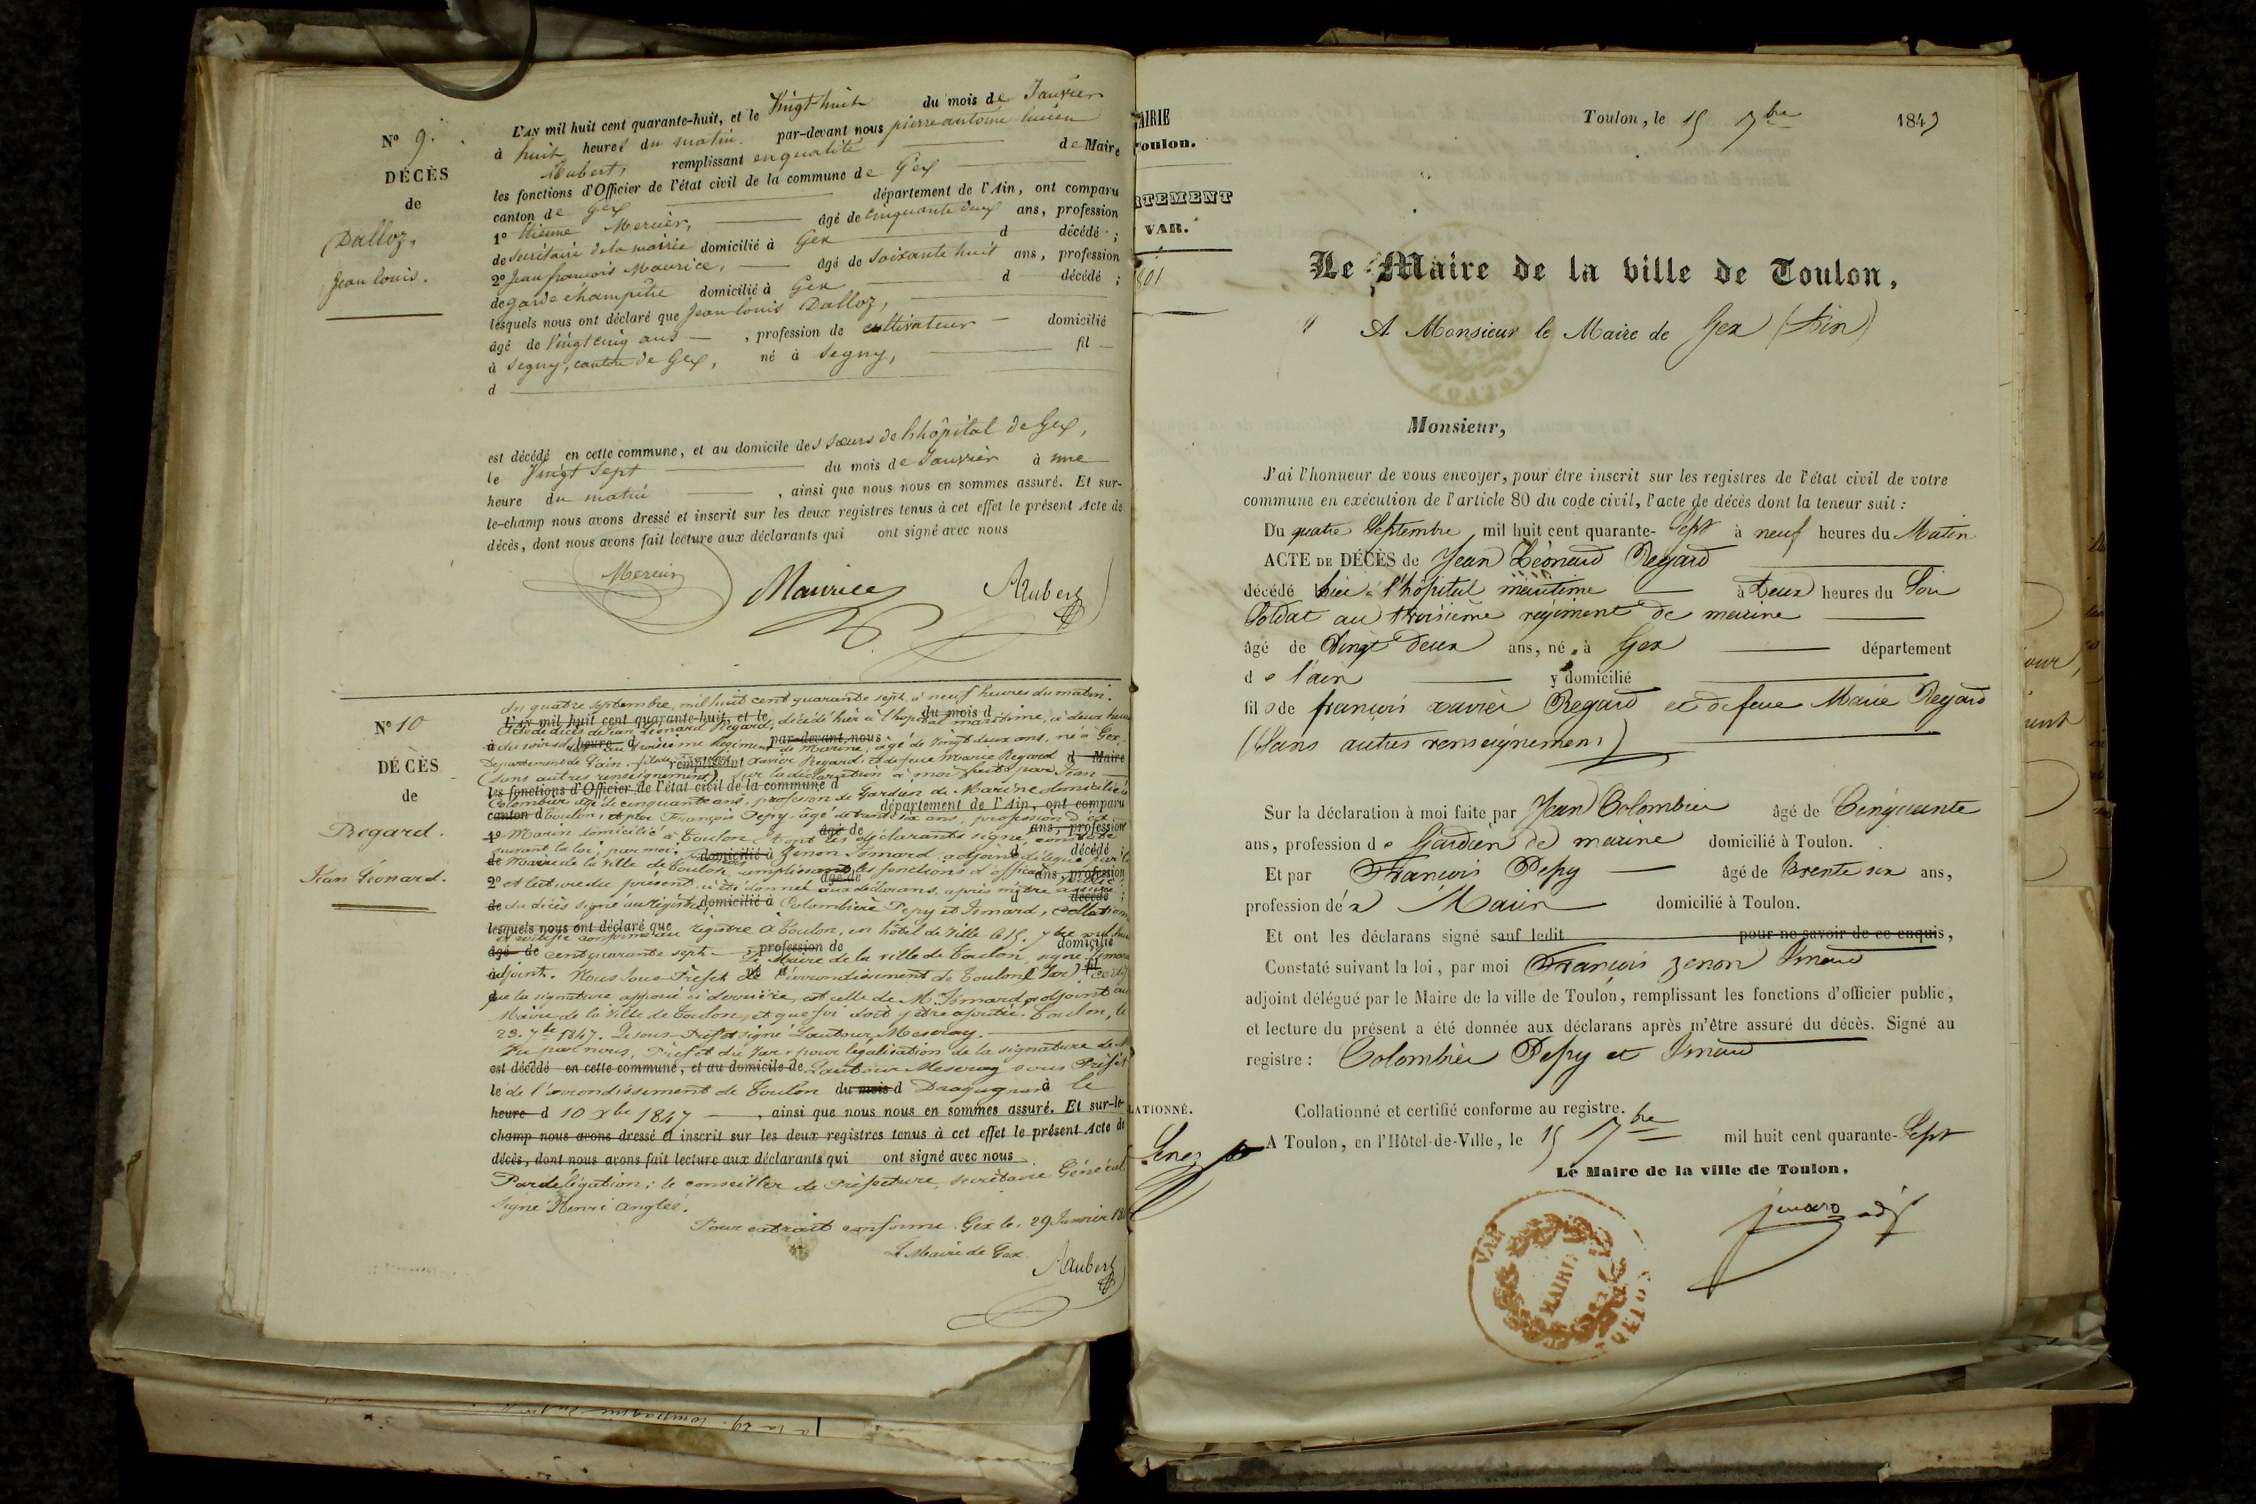 N° 9.
DÉCÈS
de
Dalloz,
Jean louis.
L'AN mil huit cent quarante-huit, et le Vingt huit du mois de Janvier
à huit heures du matin par-devant nous pierre antoine lucien
Aubert, remplissant en qualité de Maire
les fonctions d'Officier de l'état civil de la commune de Gex
canton de Gex département de l'Ain, ont comparu
1° Etienne Mercier, âgé de cinquante deux ans, profession
de secrétaire de la mairie domicilié à Gex d décédé ;
2° Jean françois Maurice, âgé de soixante huit ans, profession
de garde champêtre domicilié à Gex d décédé ;
lesquels nous ont déclaré que Jean louis Dalloz,
âgé de Vingt cinq ans , profession de cultivateur domicilié
à Segny, canton de Gex, né à Segny, fil
d
est décédé en cette commune, et au domicile des sœurs de l'hôpital de Gex,
le Vingt Sept du mois de Janvier à une
heure du matin , ainsi que nous nous en sommes assuré. Et sur-
le-champ nous avons dressé et inscrit sur les deux registres tenus à cet effet le présent Acte de
décès, dont nous avons fait lecture aux déclarants qui ont signé avec nous
Mercier Maurice Aubert
N° 10
DÉCÈS
de
Regard.
Jean Léonard.
du quatre septembre, mil huit cent quarante sept, à neuf heures du matin.
L'AN mil huit cent quarante-huit, et le du mois d
Acte de décès de Jean Léonard Regard, décédé hier à l'hôpital maritime, à deux heures
à heure d par-devant nous
du soir soldat au troisième Régiment de Marine, âgé de vingt deux ans, né à Gex,
Département de l'Ain, fils de françois xavier Regard, et de feue Marie Regard
remplissant d Maire
(sans autres renseignement) Sur la déclaration à moi faite par Jean
les fonctions d'Officier de l'état civil de la commune d
Colombier âgé de cinquante ans, profession de Gardien de Marine domicilié à
canton d département de l'Ain, ont comparu
Toulon, et par François Pepy, âgé de trente six ans, profession d
1° âgé de ans, profession
Marin domicilié à Toulon, et ont les déclarants signé, constaté
suivant la loi, par moi Zenon Isnard, adjoint délégué par le
de domicilié à d décédé ;
Maire de la Ville de Toulon, remplissant les fonctions d'officier public
2° âgé de ans, profession
et lecture du présent a été donnée aux déclarans, après m'être assuré
de domicilié à d décédé ;
du décès signé au registre, Colombier Pepy et Isnard, collationné
lesquels nous ont déclaré que
et certifié conforme au registre à Toulon, en hôtel de Ville le 15. 7bre mil huit
âgé de , profession de domicilié
cent quarante sept Le Maire de la ville de Toulon, signé Isnard
à né à fil
adjoint. Nous Sous-Préfet de l'arrondissement de Toulon (Var) certifie
d
que la signature apposée ci derrière, est celle de M. Isnard adjoint au
Maire de la Ville de Toulon, et que foi doit y être ajoutée. Toulon, le
23. 7bre 1847. Le sous-Préfet signé Lautour, Meseray.
Vu par nous, Préfet du Var, pour légalisation de la signature de M
est décédé en cette commune, et au domicile de Lautour Meseray sous Préfet
le de l'arrondissement de Toulon du mois d Draguignan à le
heure d 10 xbre 1847 , ainsi que nous nous en sommes assuré. Et sur-le-
champ nous avons dressé et inscrit sur les deux registres tenus à cet effet le présent Acte de
décès, dont nous avons fait lecture aux déclarants qui ont signé avec nous
Par délégation ; le conseiller de Préfecture, secrétaire Général
signé Henri anglès.
Pour extrait conforme. Gex le, 29 Janvier
Le Maire de Gex
Aubert
AIRIE
oulon.
RTEMENT
VAR.
801
Toulon, le 15 7bre 1847
Le Maire de la ville de Toulon,
A Monsieur le Maire de Gex (Ain)
Monsieur,
J'ai l'honneur de vous envoyer, pour être inscrit sur les registres de l'état civil de votre
commune en exécution de l'article 80 du code civil, l'acte de décès dont la teneur suit :
Du quatre Septembre mil huit cent quarante-Sept à neuf heures du Matin
ACTE DE DÉCÈS de Jean Léonard Regard
décédé hier à l'hôpital maritime à deux heures du Soir
Soldat au troisième régiment de marine
âgé de Vingt Deux ans, né à Gex département
de l'ain y domicilié
fils de françois xavier Regard et de feue Marie Regard
(Sans autres renseignemens)
Sur la déclaration à moi faite par Jean Colombier âgé de Cinquante
ans, profession de Gardien de marine domicilié à Toulon.
Et par François Pepy âgé de trente six ans,
profession de Marin domicilié à Toulon.
Et ont les déclarans signé sauf ledit pour ne savoir de ce enquis,
Constaté suivant la loi, par moi François Zenon Isnard
adjoint délégué par le Maire de la ville de Toulon, remplissant les fonctions d'officier public,
et lecture du présent a été donnée aux déclarans après m'être assuré du décès. Signé au
registre : Colombier Pepy et Isnard
LATIONNÉ.
Collationné et certifié conforme au registre.
A Toulon, en l'Hôtel-de-Ville, le 15 7bre mil huit cent quarante-Sept
Le Maire de la ville de Toulon.
Isnard adj
VAR
MAIRIE
TOULON